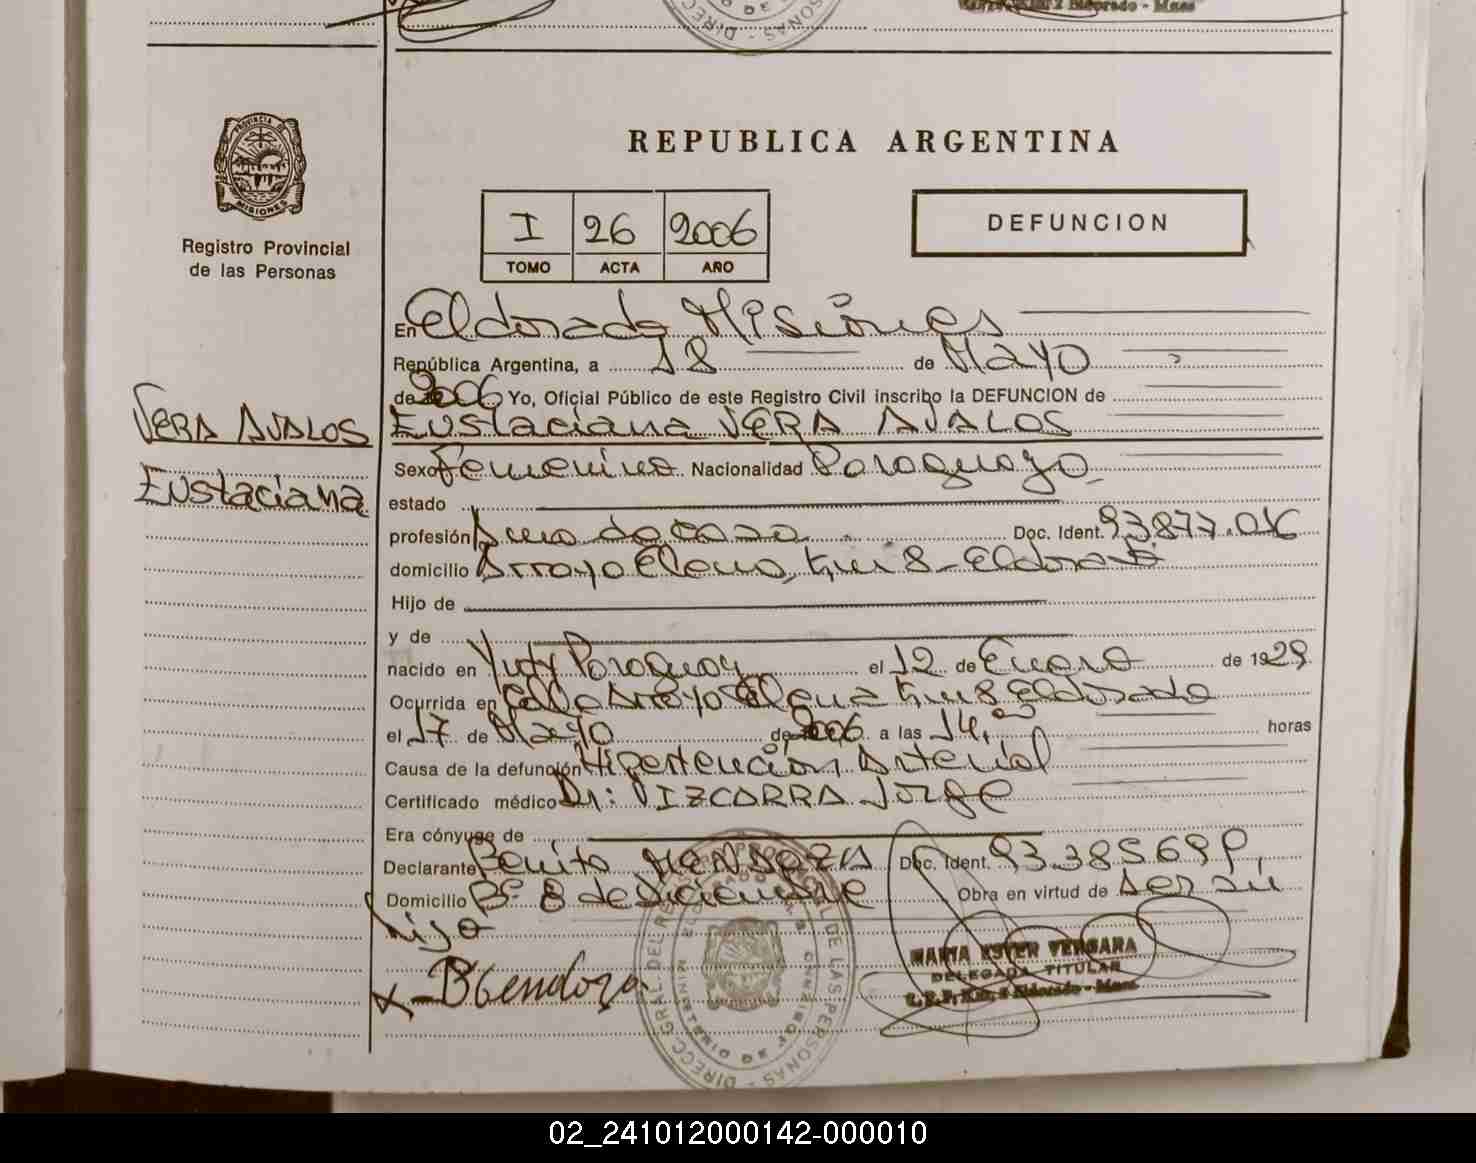 PROVINCIA DE
MISIONES
Registro Provincial
de las Personas
VERA AVALOS
Eustaciana
REPUBLICA ARGENTINA
I 26 2006
TOMO ACTA AÑO
DEFUNCION
En Eldorado Misiones
República Argentina, a 18 de Mayo
de 2006 Yo, Oficial Público de este Registro Civil inscribo la DEFUNCION de
Eustaciana VERA AVALOS
Sexo femenino Nacionalidad Paraguaya
estado
profesión Ama de casa Doc. Ident. 93.877.016
domicilio Arroyo Elena, km 8 - Eldorado
Hijo de
y de
nacido en Yuty Paraguay el 12 de Enero de 1929
Ocurrida en Calle Arroyo Elena km 8 Eldorado
el 17 de Mayo de 2006 a las 14,00 horas
Causa de la defunción Hipertencion Arterial
Certificado médico Dr: VIZCARRA Jorge
Era cónyuge de
Declarante Benito MENDOZA Doc. Ident. 93.385.689,
Domicilio Bº 8 de Diciembre Obra en virtud de ser su
hijo
x - BMendoza
MARIA ESTER VERGARA
DELEGADA TITULAR
Eldorado - Mnes
02_241012000142-000010